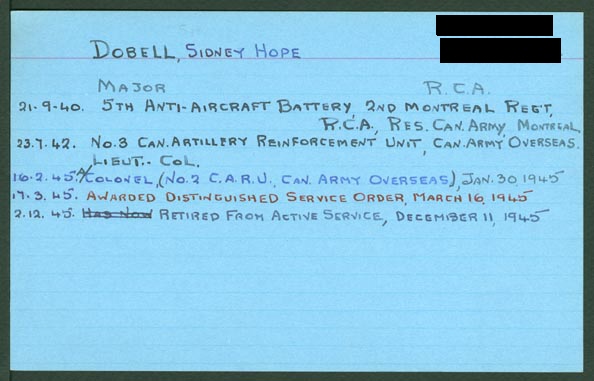 DOBELL, SIDNEY HOPE
MAJOR R.C.A.
21-9-40. 5TH ANTI-AIRCRAFT BATTERY, 2ND MONTREAL REG'T,
R.C.A., RES. CAN. ARMY, MONTREAL.
23.7.42. NO.3 CAN. ARTILLERY REINFORCEMENT UNIT, CAN. ARMY OVERSEAS.
LIEUT.- COL.
16.2.45. A/COLONEL, (NO.2 C.A.R.U., CAN. ARMY OVERSEAS), JAN. 30 1945
17.3.45. AWARDED DISTINGUISHED SERVICE ORDER, MARCH 16, 1945
2.12.45. HAS NOW RETIRED FROM ACTIVE SERVICE, DECEMBER 11, 1945